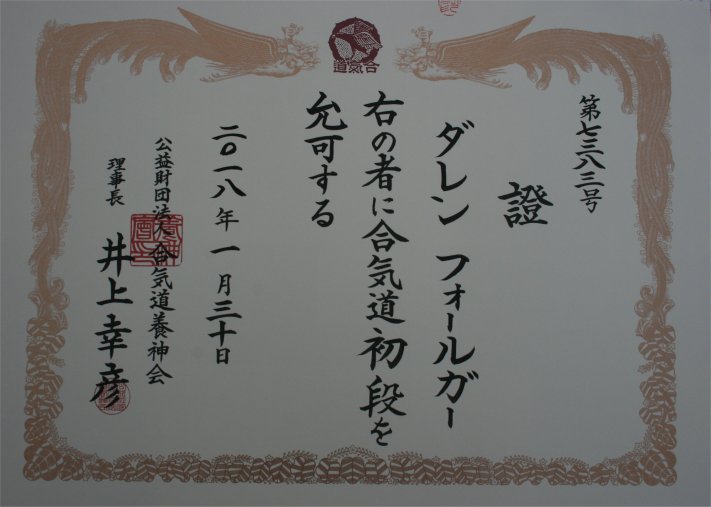 合氣道
第七三八三号
證
ダレン フォールガー
右の者に合気道初段を
允可する
二〇一八年一月三十日
公益財団法人合気道養神会
理事長 井上幸彦